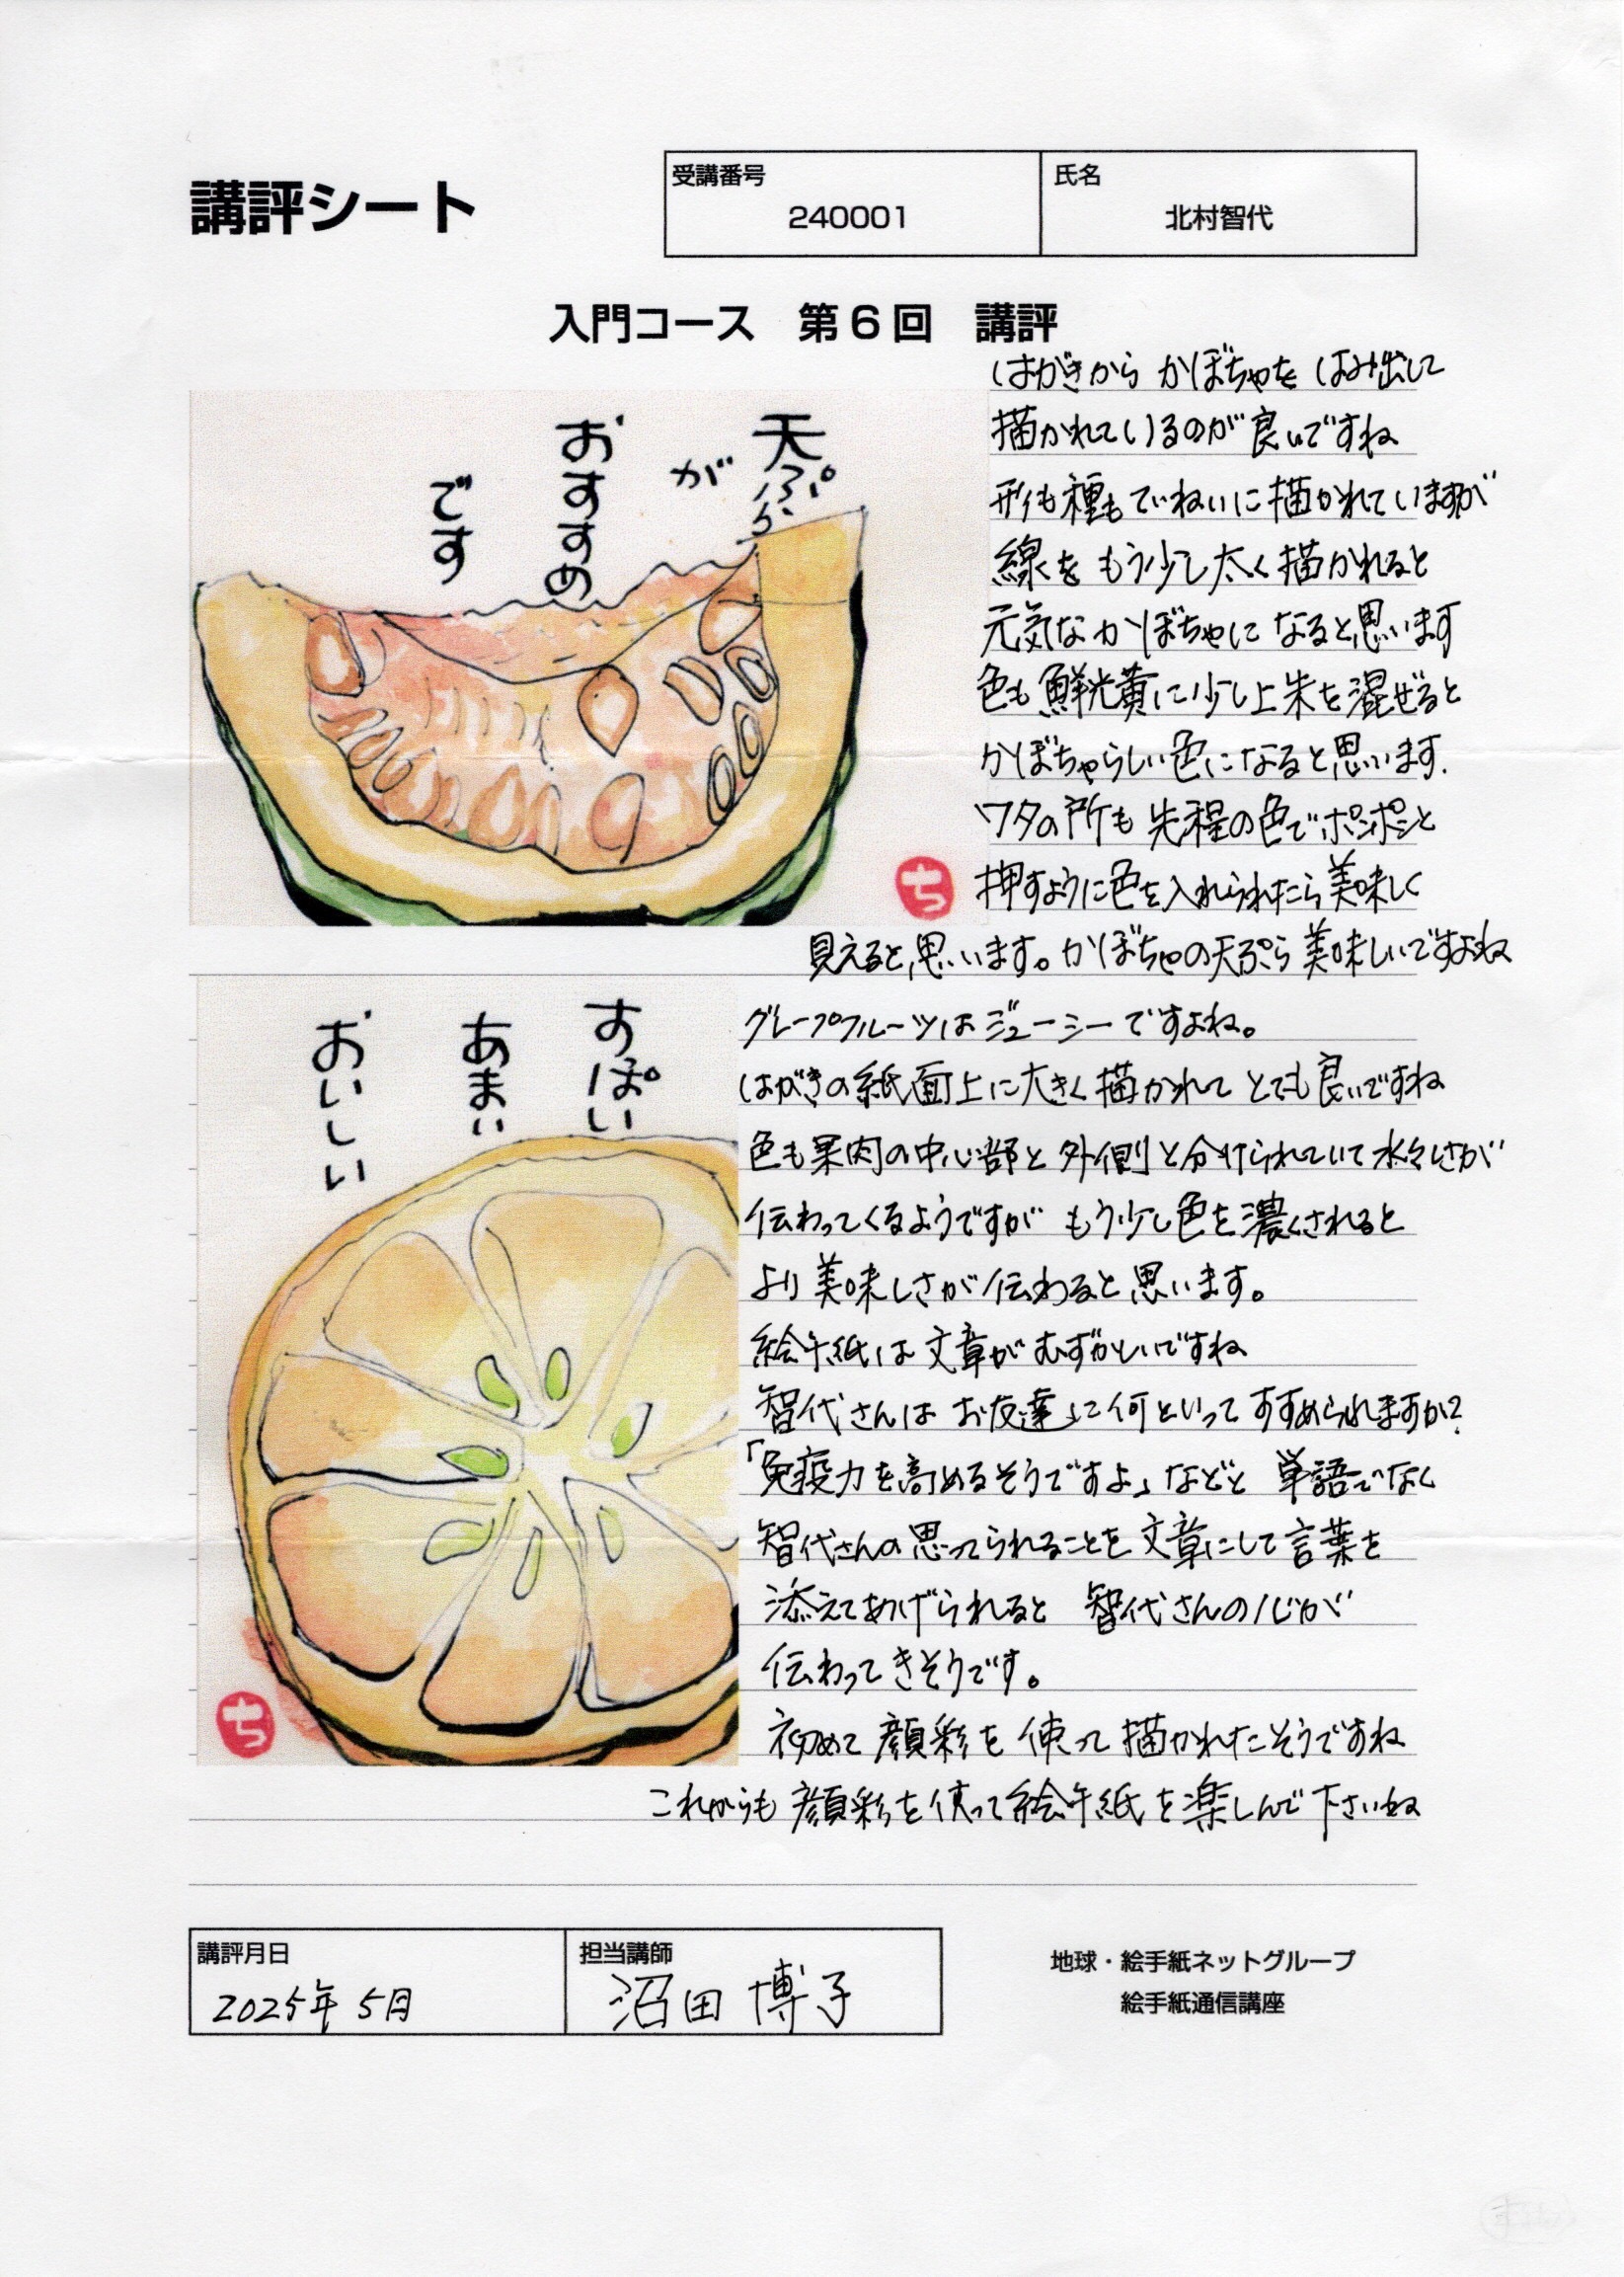 講評シート
受講番号
240001
氏名
北村智代
入門コース 第6回 講評
天ぷら
が
おすすめ
です
ち
はがきから かぼちゃを はみ出して
描かれているのが良いですね
形も種もていねいに描かれていますが
線を もう少し太く描かれると
元気なかぼちゃに なると思います
色も鮮光黄に少し上朱を混ぜると
かぼちゃらしい色になると思います.
ワタの所も先程の色でポンポンと
押すように色を入れられたら美味しく
見えると思います。かぼちゃの天ぷら美味しいですよね
すぱい
あまい
おいしい
ち
グレープフルーツはジューシーですよね。
はがきの紙面上に大きく描かれて とても良いですね
色も果肉の中心部と外側と分けられていて水々しさが
伝わってくるようですが もう少し色を濃くされると
より美味しさが伝わると思います。
絵手紙は文章がむずかしいですね
智代さんは お友達に何といってすすめられますか?
「免疫力を高めるそうですよ」などと 単語でなく
智代さんの思ってられることを文章にして言葉を
添えてあげられると 智代さんの心が
伝わってきそうです。
初めて顔彩を使って描かれたそうですね
これからも顔彩を使って絵手紙を楽しんで下さいね
講評月日
2025年5月
担当講師
沼田 博子
地球・絵手紙ネットグループ
絵手紙通信講座